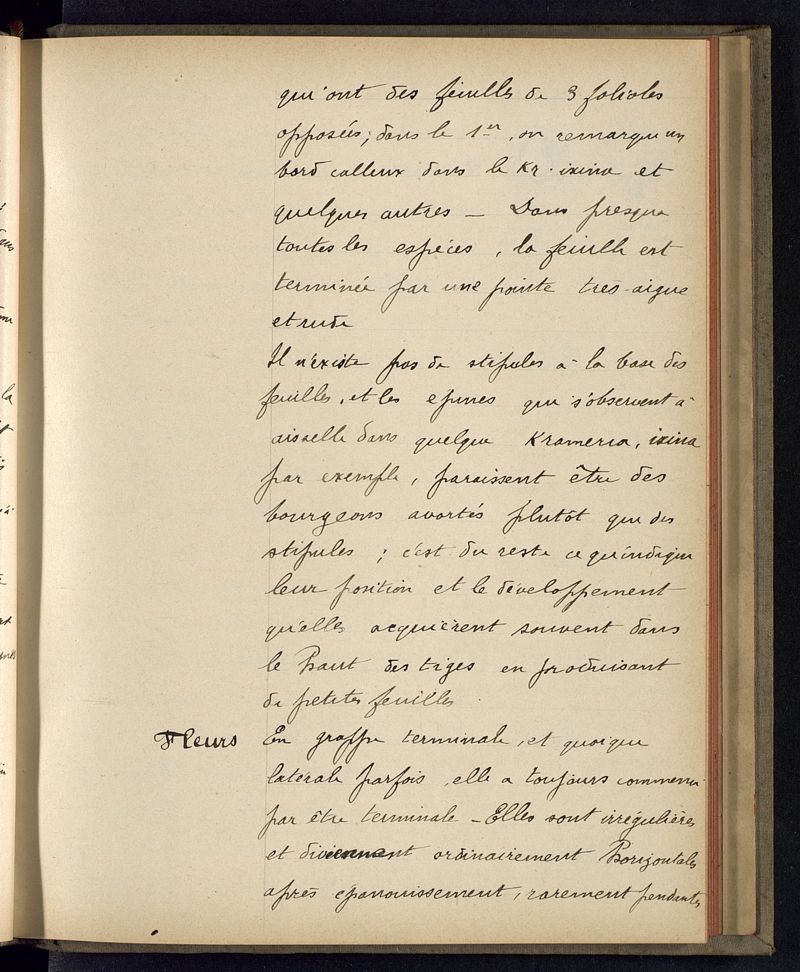 qui ont des feuilles de 3 folioles
opposées ; dans le 1er, on remarque un
bord calleux dans le Kr. ixina et
quelques autres — Dans presque
toutes les espèces, la feuille est
terminée par une pointe très-aigue
et rude
Il n'existe pas de stipules à la base des
feuilles, et les epines que s'observent à
aisselle dans quelque Krameria, ixina
par exemple, paraissent être des
bourgeons avortés plutôt que des
stipules ; c'est du reste ce qu'indique
leur position et le développement
qu'elles acquièrent souvent dans
le haut des tiges en produisant
de petites feuilles.
Fleurs En grappe terminale, et quoique
latérale parfois, elle a toujours commencé
par être terminale — Elles sont irrégulières
et diviennent ordinairement horizontales
après épanouissement, rarement pendantes